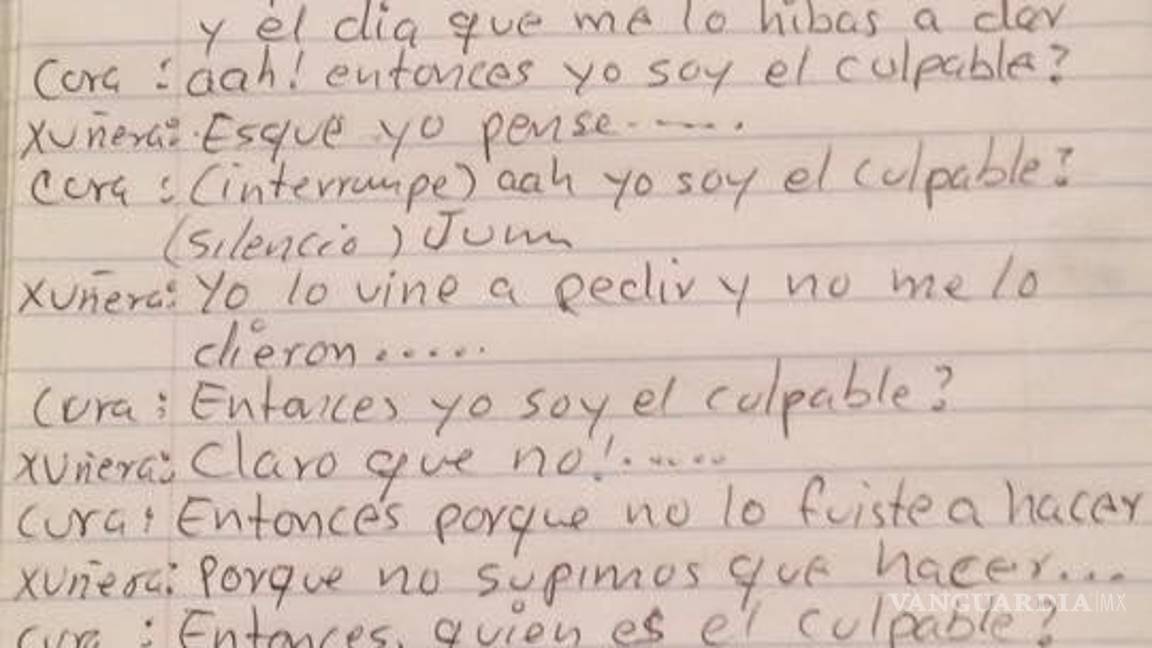 y el dia que me lo hibas a dar
Cura : aah! entonces yo soy el culpable?
Xuñera: Esque yo pense......
Cura : (interrumpe) aah yo soy el culpable?
(silencio) Jumm
Xuñera: Yo lo vine a pedir y no me lo
dieron.....
Cura : Entonces yo soy el culpable?
Xuñera: Claro que no!.....
Cura : Entonces porque no lo fuiste a hacer
Xuñera: Porque no supimos que hacer...
Cura : Entonces, quien es el culpable?
VANGUARDIA|MX